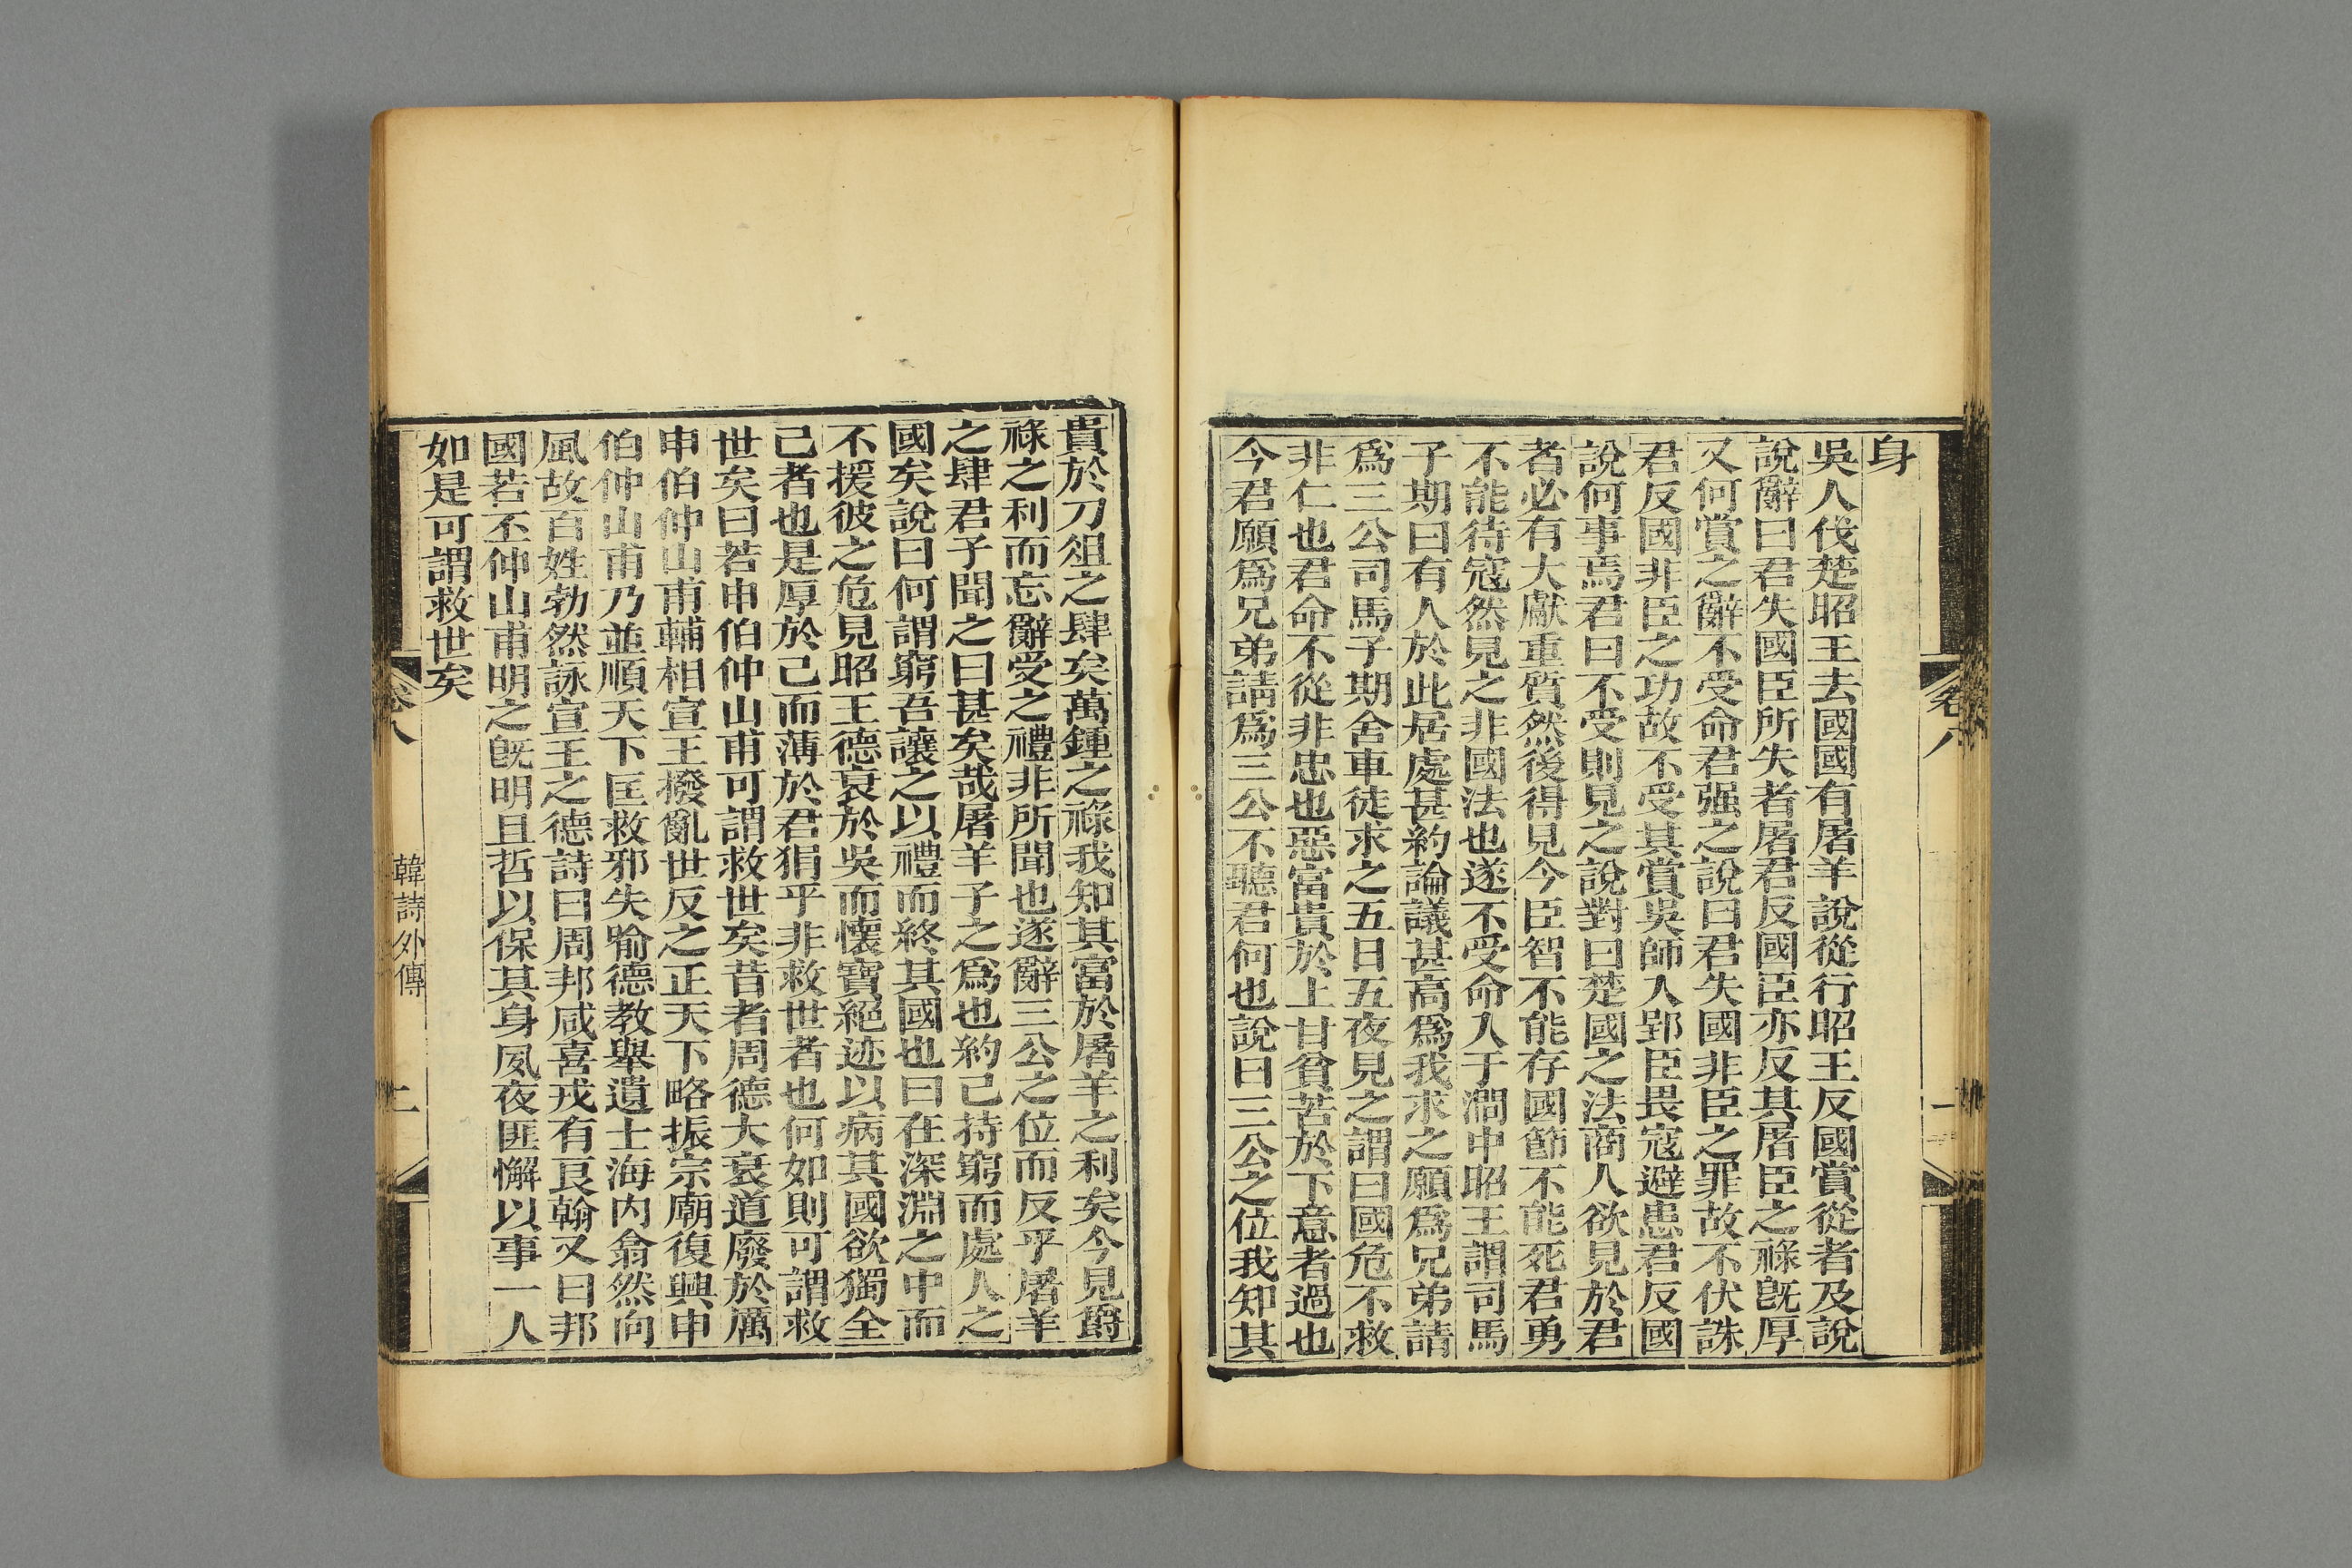 身
吳人伐楚昭王去國國有屠羊說從行昭王反國賞從者及說
說辭曰君失國臣所失者屠君反國臣亦反其屠臣之祿旣厚
又何賞之辭不受命君强之說曰君失國非臣之罪故不伏誅
君反國非臣之功故不受其賞吳師入郢臣畏寇避患君反國
說何事焉君曰不受則見之說對曰楚國之法商人欲見於君
者必有大獻重質然後得見今臣智不能存國節不能死君勇
不能待寇然見之非國法也遂不受命入于澗中昭王謂司馬
子期曰有人於此居處甚約論議甚高爲我求之願爲兄弟請
爲三公司馬子期舍車徒求之五日五夜見之謂曰國危不救
非仁也君命不從非忠也惡富貴於上甘貧苦於下意者過也
今君願爲兄弟請爲三公不聽君何也說曰三公之位我知其
卷八
一
貴於刀俎之肆矣萬鍾之祿我知其富於屠羊之利矣今見爵
祿之利而忘辭受之禮非所聞也遂辭三公之位而反乎屠羊
之肆君子聞之曰甚矣哉屠羊子之爲也約己持窮而處人之
國矣說曰何謂窮吾讓之以禮而終其國也曰在深淵之中而
不援彼之危見昭王德衰於吳而懷寶絕迹以病其國欲獨全
己者也是厚於己而薄於君狷乎非救世者也何如則可謂救
世矣曰若申伯仲山甫可謂救世矣昔者周德大衰道廢於厲
申伯仲山甫輔相宣王撥亂世反之正天下略振宗廟復興申
伯仲山甫乃並順天下匡救邪失喻德教舉遺士海内翕然向
風故百姓勃然詠宣王之德詩曰周邦咸喜戎有良翰又曰邦
國若丕仲山甫明之旣明且哲以保其身夙夜匪懈以事一人
如是可謂救世矣
卷八
韓詩外傳
二